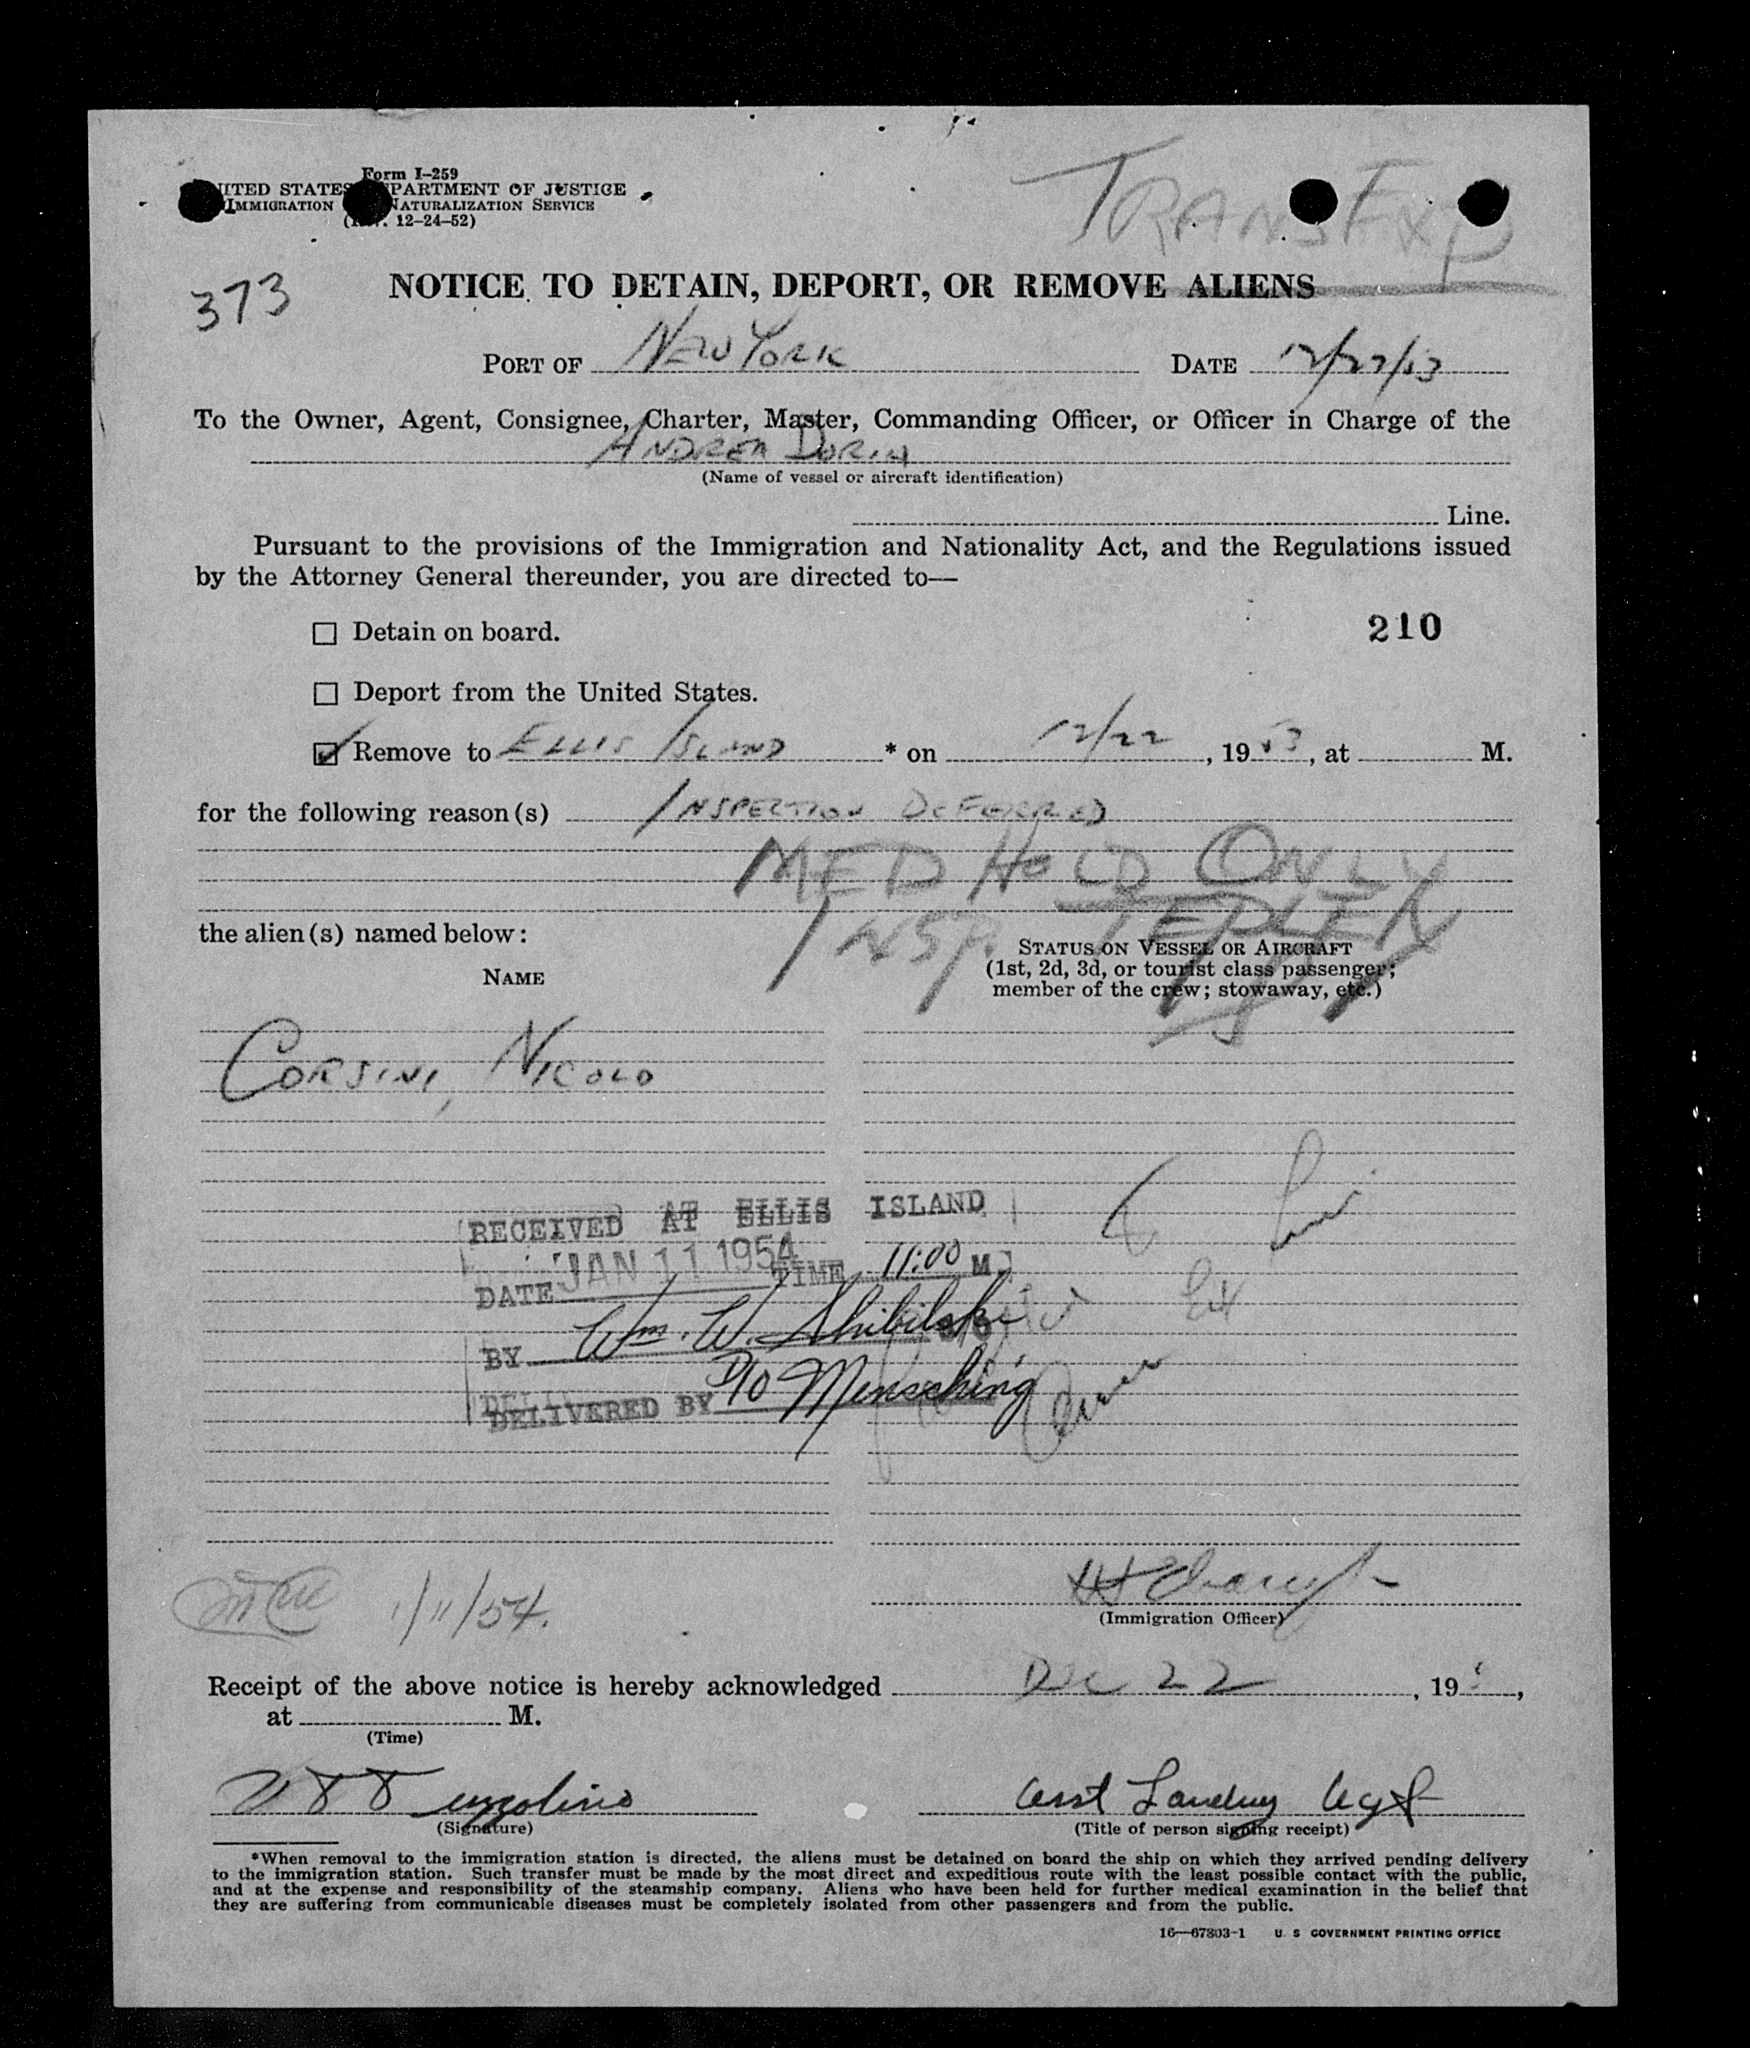 Form I-259
UNITED STATES DEPARTMENT OF JUSTICE
IMMIGRATION NATURALIZATION SERVICE
12-24-52)
373
NOTICE TO DETAIN, DEPORT, OR REMOVE ALIENS
PORT OF NEW YORK DATE 12/22/53
To the Owner, Agent, Consignee, Charter, Master, Commanding Officer, or Officer in Charge of the
ANDREA DORIA
(Name of vessel or aircraft identification)
Line.
Pursuant to the provisions of the Immigration and Nationality Act, and the Regulations issued
by the Attorney General thereunder, you are directed to—
☐ Detain on board. 210
☐ Deport from the United States.
☑ Remove to ELLIS ISLAND * on 12/22, 1953, at M.
for the following reason(s) INSPECTION DEFERRED
MED HOLD ONLY
INSP.
the alien(s) named below:
NAME
STATUS ON VESSEL OR AIRCRAFT
(1st, 2d, 3d, or tourist class passenger;
member of the crew; stowaway, etc.)
CORSINI, NICOLO
RECEIVED AT ELLIS ISLAND
DATE JAN 11 1954 TIME 11:00 M
BY Wm. W. Shibilski
DELIVERED BY D/O Mensching
1/11/54.
(Immigration Officer)
Receipt of the above notice is hereby acknowledged Dec 22, 19 ,
at M.
(Time)
Asst Landing Agt
(Signature) (Title of person signing receipt)
*When removal to the immigration station is directed, the aliens must be detained on board the ship on which they arrived pending delivery
to the immigration station. Such transfer must be made by the most direct and expeditious route with the least possible contact with the public,
and at the expense and responsibility of the steamship company. Aliens who have been held for further medical examination in the belief that
they are suffering from communicable diseases must be completely isolated from other passengers and from the public.
16—67303-1 U. S GOVERNMENT PRINTING OFFICE